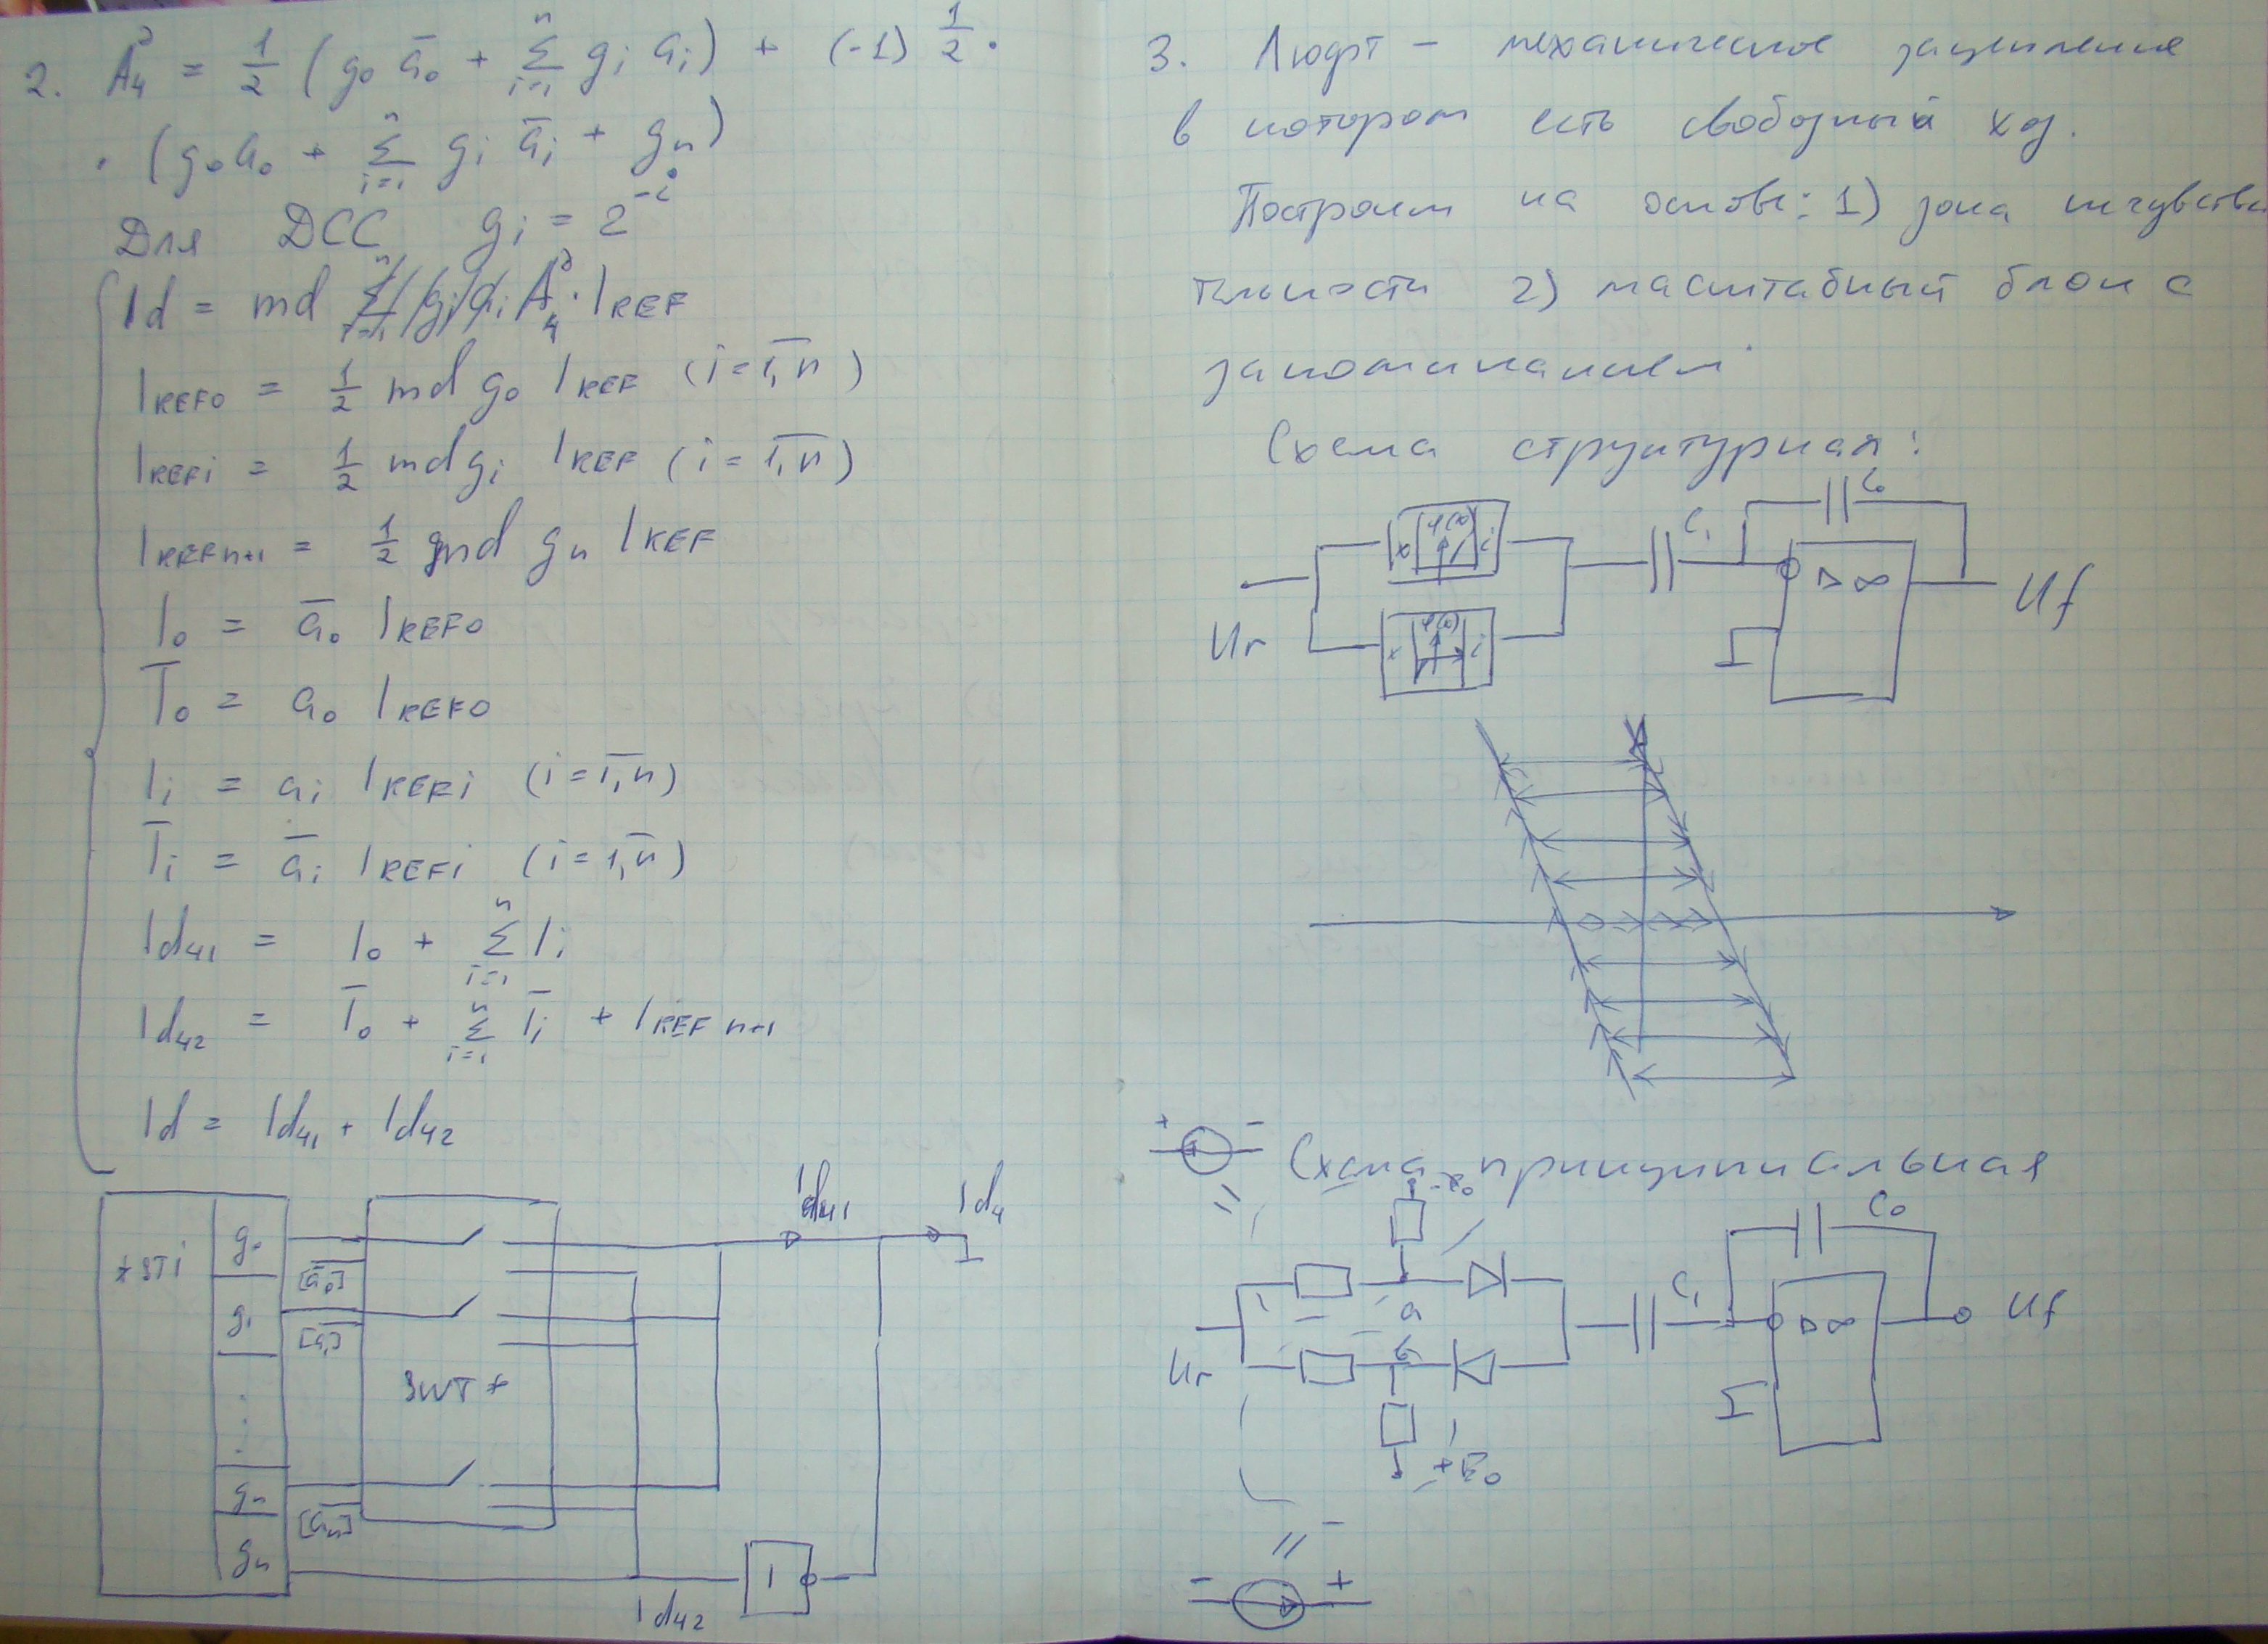 2. A₄^∂ = 1/2 (g₀ ā₀ + Σ_{i=1}^{n} gᵢ aᵢ) + (-1) 1/2 ·
· (g₀ a₀ + Σ_{i=1}^{n} gᵢ āᵢ + gₙ)
Для ДСС gᵢ = 2^{-i}
Id = md A₄^∂ · I_REF
I_REF0 = 1/2 md g₀ I_REF (i = 1,n̅)
I_REFi = 1/2 md gᵢ I_REF (i = 1,n̅)
I_REFn+1 = 1/2 md gₙ I_REF
I₀ = ā₀ I_REF0
Ī₀ = a₀ I_REF0
Iᵢ = aᵢ I_REFi (i = 1,n̅)
Īᵢ = āᵢ I_REFi (i = 1,n̅)
Id₄₁ = I₀ + Σ_{i=1}^{n} Iᵢ
Id₄₂ = Ī₀ + Σ_{i=1}^{n} Īᵢ + I_REF n+1
Id = Id₄₁ + Id₄₂
Id₄₁ Id₄
g₀
[ā₀]
g₁
[a₁]
SWT *
gₙ
[aₙ]
gₙ
1
Id₄₂
3. Люфт - механическое зацепление
в котором есть свободный ход.
Построим на основе: 1) зона нечувстви
тельности 2) масштабный блок с
запоминанием
Схема структурная:
C₀
C₁
x f(x) i
▷ ∞
Uf
Ur
x f(x) i
+ -
Схема принципиальная
-E₀
C₀
C₁
a
▷ ∞
Uf
б
Ur
+E₀
-
- +